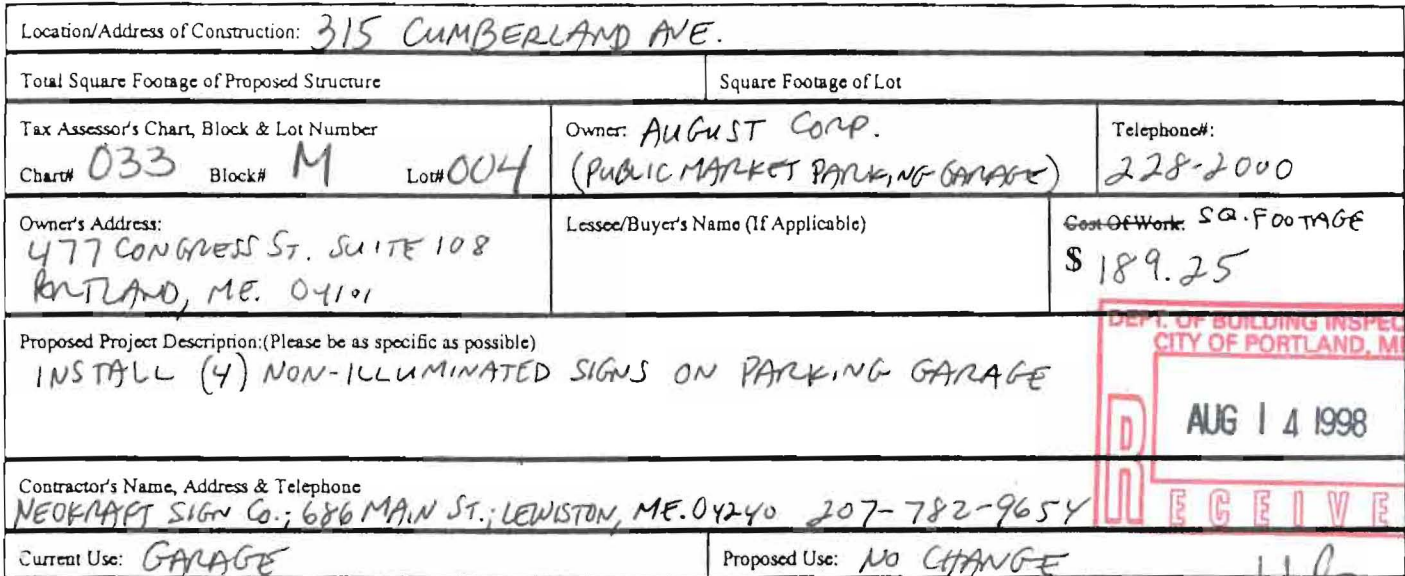 Location/Address of Construction: 315 CUMBERLAND AVE.
Total Square Footage of Proposed Structure
Square Footage of Lot
Tax Assessor's Chart, Block & Lot Number
Chart# 033 Block# M Lot# 004
Owner: AUGUST CORP.
(PUBLIC MARKET PARKING GARAGE)
Telephone#:
228-2000
Owner's Address:
477 CONGRESS ST. SUITE 108
PORTLAND, ME. 04101
Lessee/Buyer's Name (If Applicable)
Cost Of Work: SQ. FOOTAGE
$ 189.25
Proposed Project Description:(Please be as specific as possible)
INSTALL (4) NON-ILLUMINATED SIGNS ON PARKING GARAGE
DEPT. OF BUILDING INSPEC
CITY OF PORTLAND, ME
AUG 14 1998
RECEIVE
Contractor's Name, Address & Telephone
NEOKRAFT SIGN CO.; 686 MAIN ST.; LEWISTON, ME. 04240 207-782-9654
Current Use: GARAGE
Proposed Use: NO CHANGE